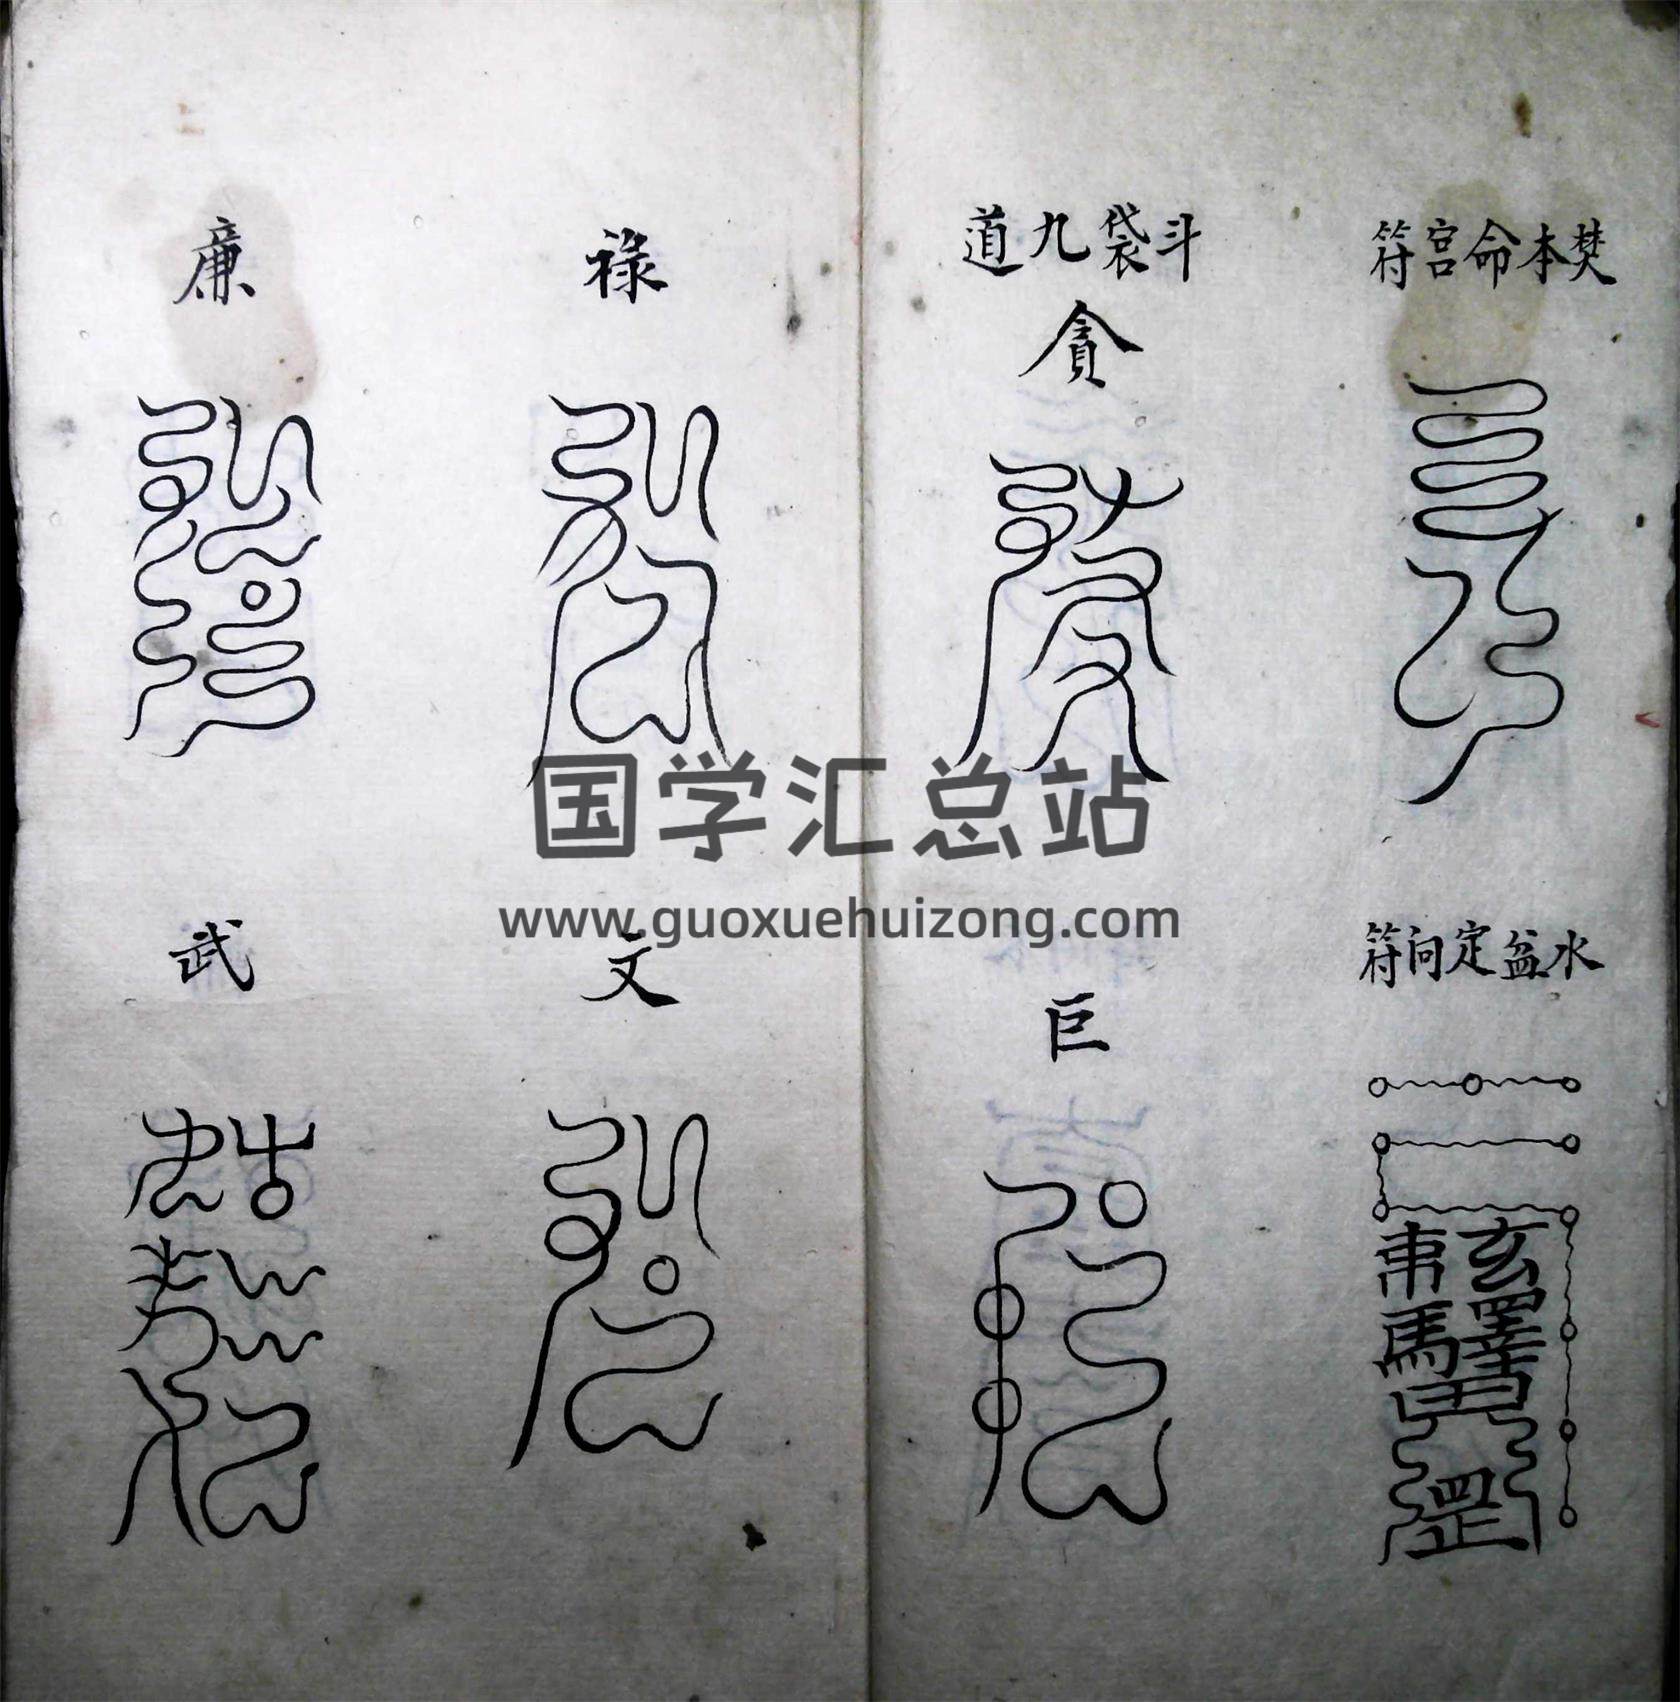 焚本命宫符
水盆定向符
斗袋九道
貪
巨
祿
文
廉
武
玄
驛
馬
罡
国学汇总站
www.guoxuehuizong.com